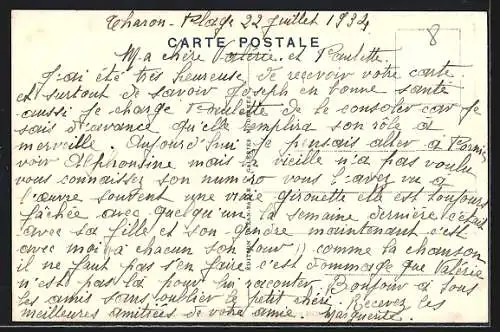 Tharon-Plage 22 Juillet 1934
8
CARTE POSTALE
Ma chère Valérie et Paulette
J'ai été très heureuse de recevoir votre carte
et surtout de savoir Joseph en bonne santé
aussi je charge Paulette de le consoler car je
sais d'avance qu'elle remplira son rôle à
merveille. Aujourd'hui je pensais aller à Pornic
voir Alphonsine mais la vieille n'a pas voulu
vous connaissez son numéro vous l'avez vu à
l'œuvre souvent une vraie girouette elle est toujours
fâchée avec quelqu'un la semaine dernière c'était
avec sa fille et son gendre maintenant c'est
avec moi (à chacun son tour)) comme la chanson
il ne faut pas s'en faire c'est dommage que Valérie
n'est pas là pour lui raconter. Bonjour à tous
les amis sans oublier le petit chéri. Recevez les
meilleures amitiées de votre amie Marguerite